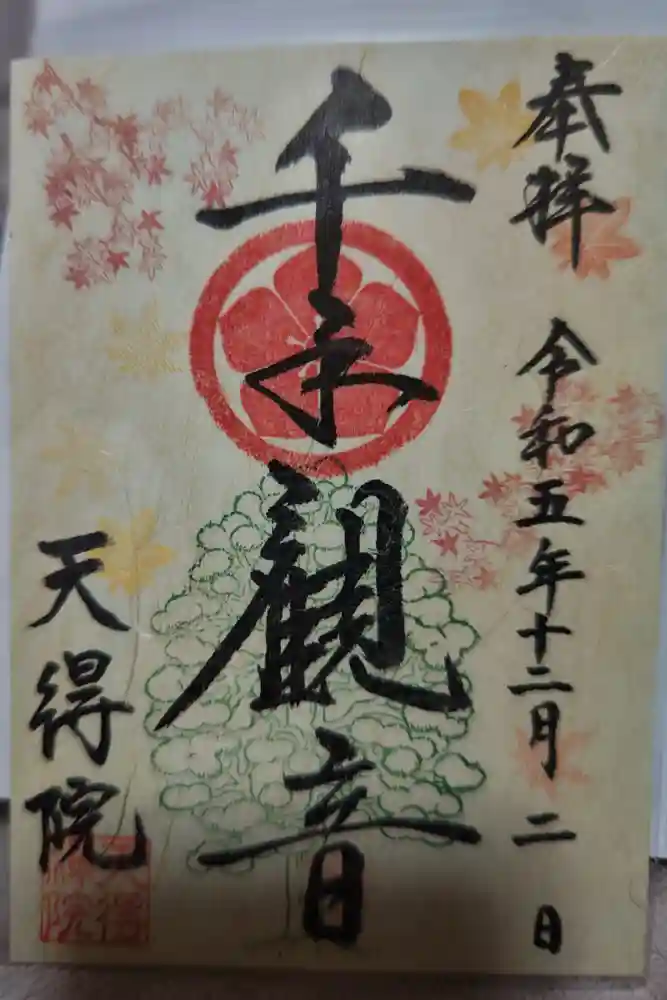 奉拝
令和五年十二月二日
千手観音
天得院